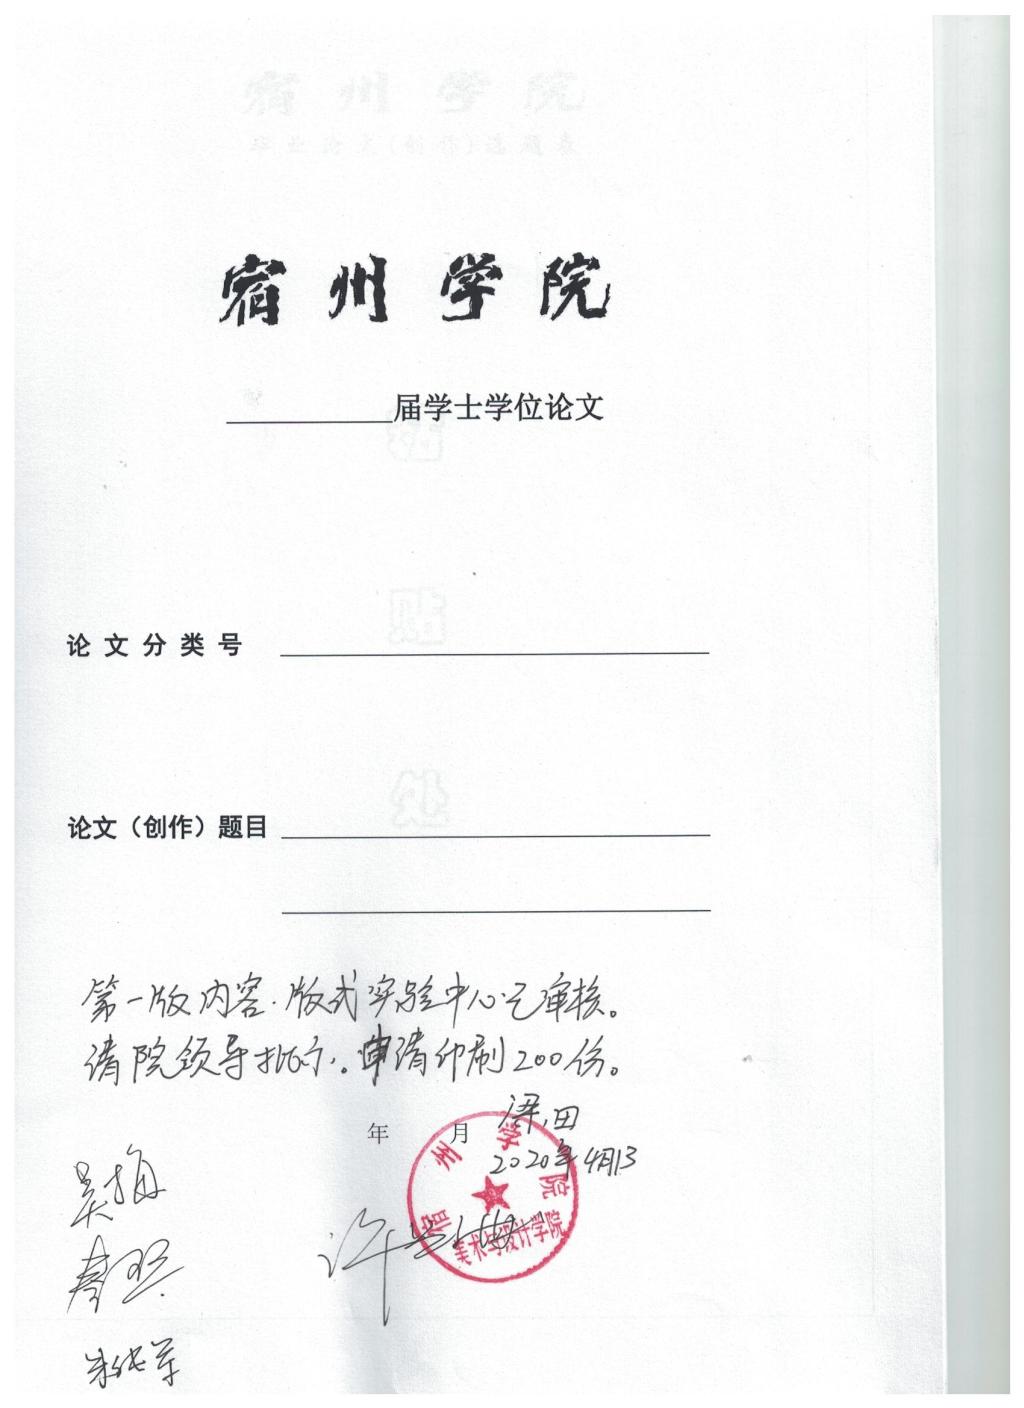 宿州学院
毕业论文(创作)选题表
宿州学院
届学士学位论文
粘
贴
处
论文分类号
论文（创作）题目
第一版内容.版式实验中心已审核。
请院领导批示。申请印刷200份。
梁田
年 月
2020年4月13
宿州学院
美术与设计学院
吴梅